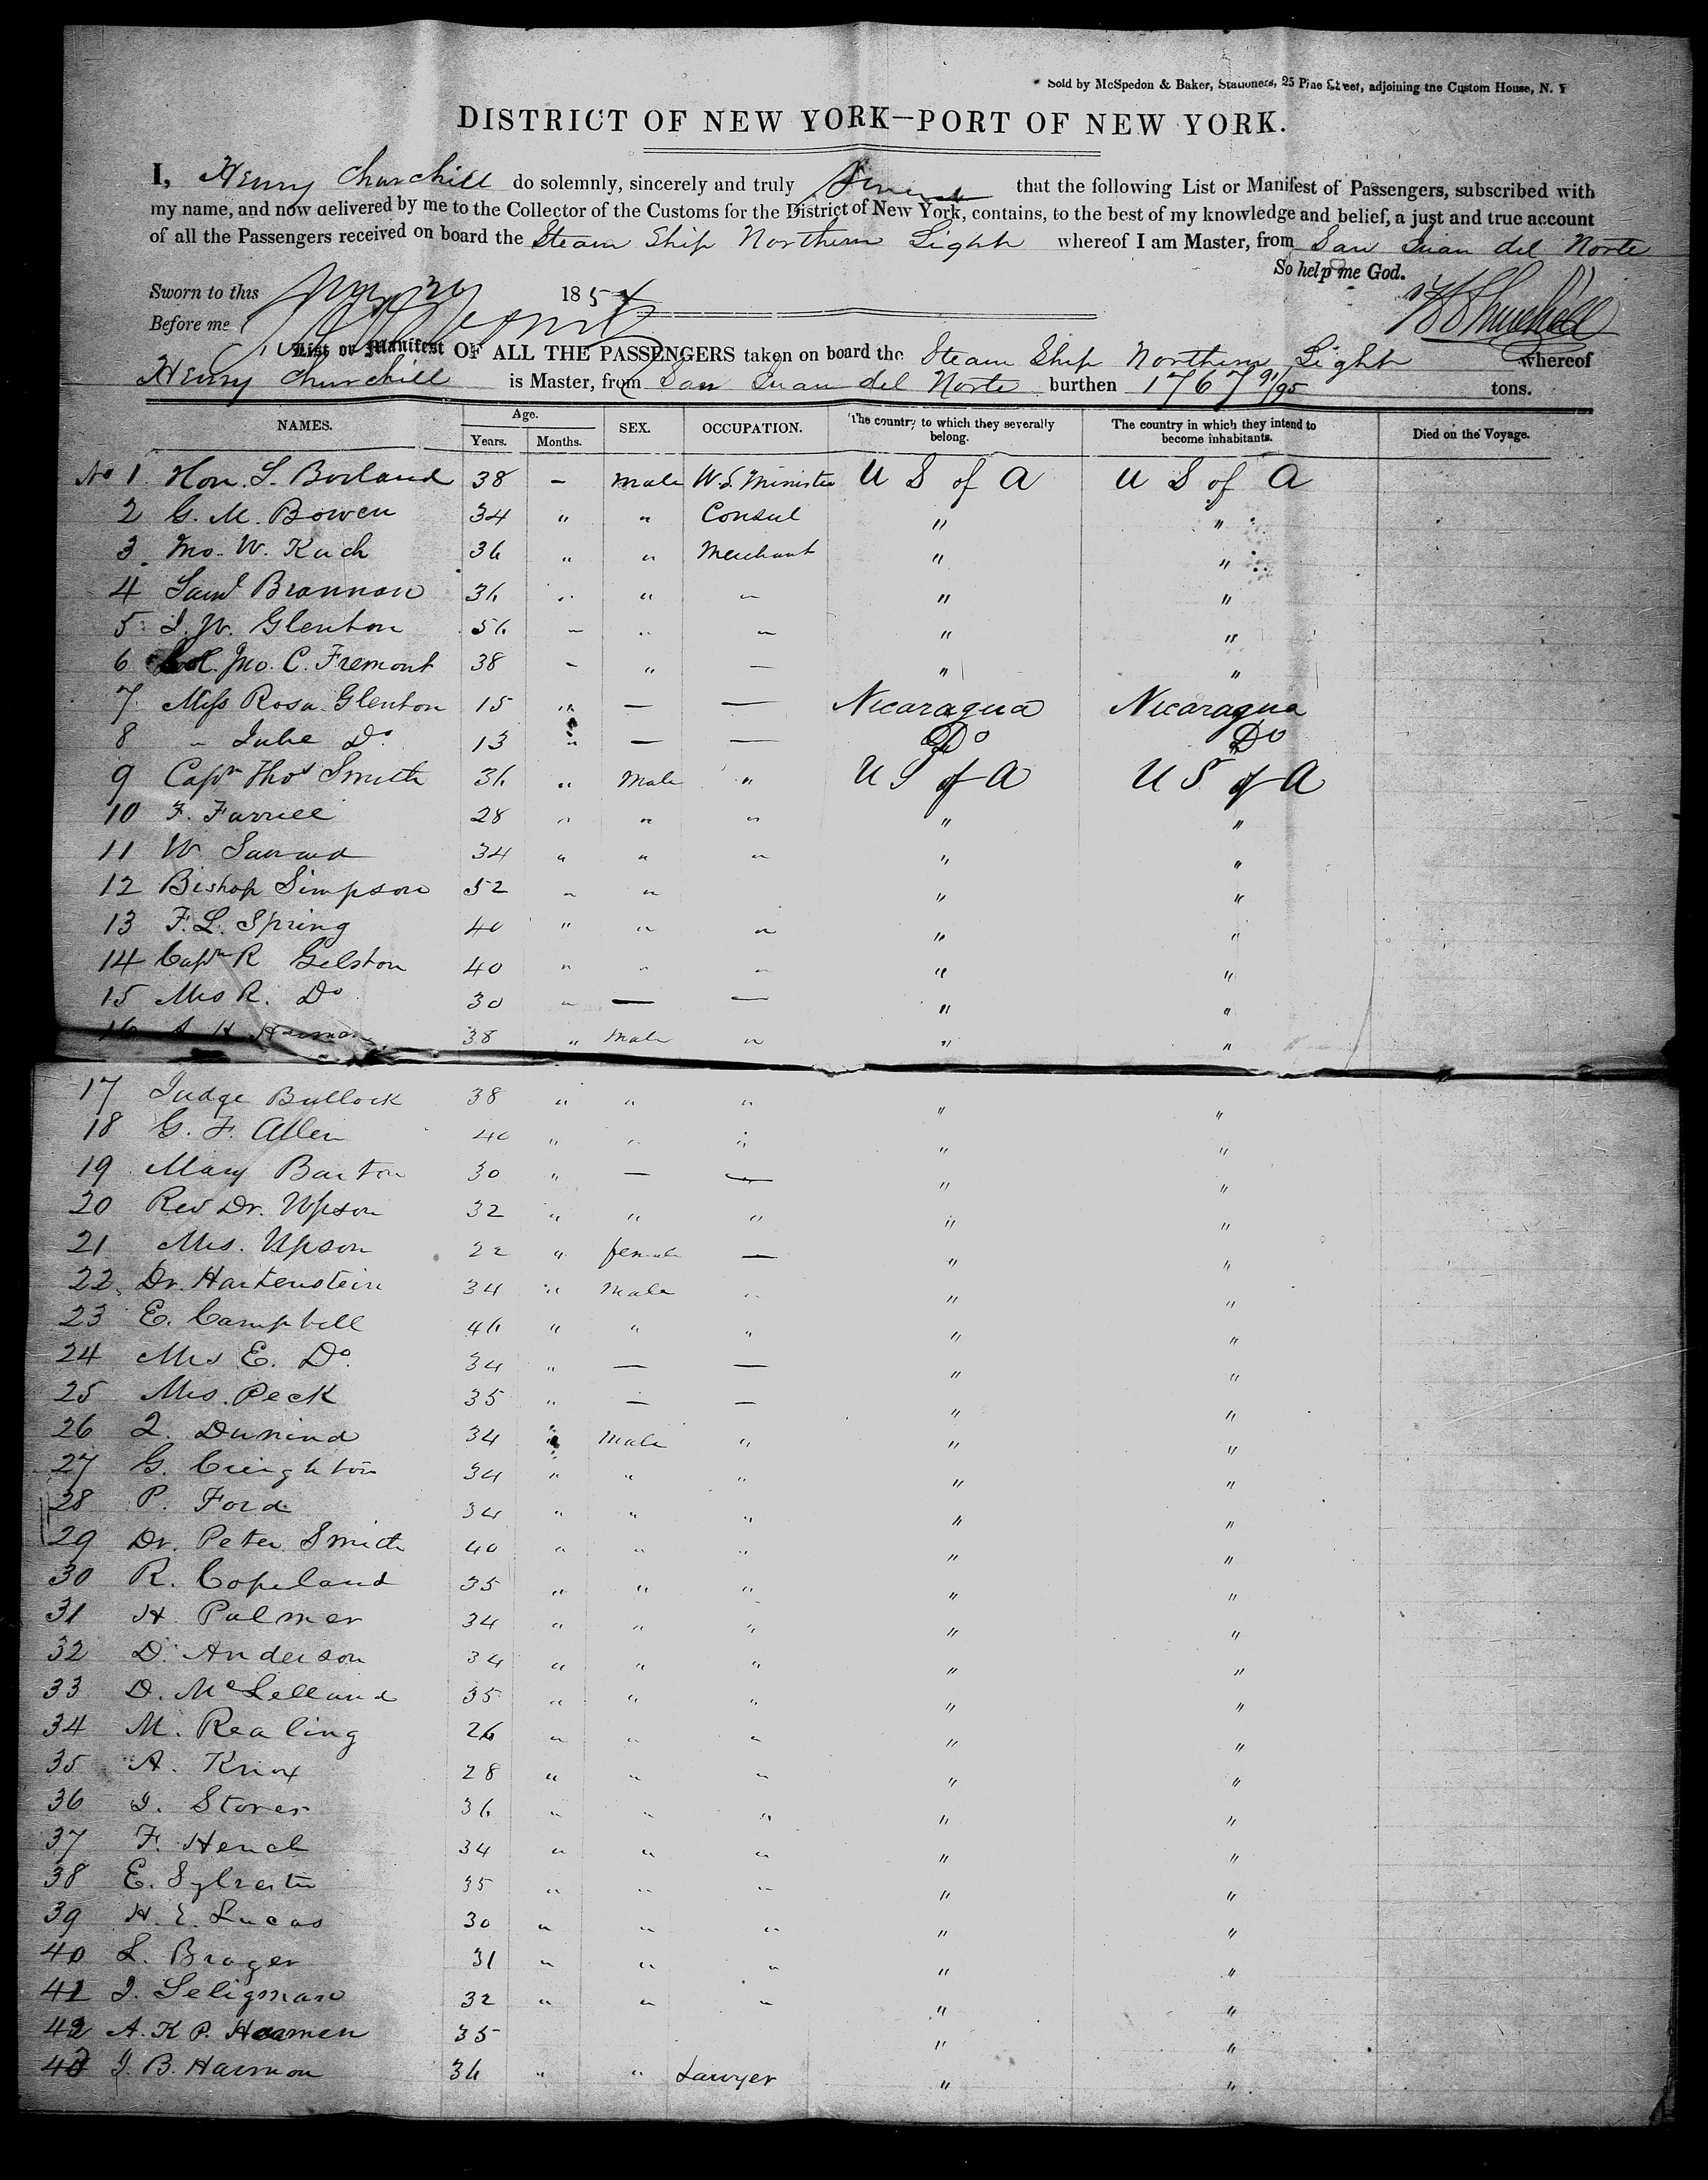 Sold by McSpedon & Baker, Stationers, 25 Pine Street, adjoining the Custom House, N. Y
DISTRICT OF NEW YORK—PORT OF NEW YORK.
I, Henry Churchill do solemnly, sincerely and truly that the following List or Manifest of Passengers, subscribed with
my name, and now delivered by me to the Collector of the Customs for the District of New York, contains, to the best of my knowledge and belief, a just and true account
of all the Passengers received on board the Steam Ship Northern Light whereof I am Master, from San Juan del Norte
So help me God.
Sworn to this 1854
H Churchill
Before me
List or Manifest OF ALL THE PASSENGERS taken on board the Steam Ship Northern Light whereof
Henry Churchill is Master, from San Juan del Norte burthen 1767 91/95 tons.
NAMES. Age. Years. Months. SEX. OCCUPATION. The country to which they severally belong. The country in which they intend to become inhabitants. Died on the Voyage.
No 1 Hon. S. Borland 38 – male U.S. Minister U S of A U S of A
2 G. M. Bowen 34 " " Consul " "
3 Jno. W. 36 " " Merchant " "
4 Saml Brannan 36 " " " " "
5 J. W. Glenton 56 " " " " "
6 Col. Jno. C. Fremont 38 – " — " "
7 Miss Rosa Glenton 15 " — — Nicaragua Nicaragua
8 " Julie Do. 13 " — — Do Do
9 Captn Thos Smith 36 " Male " U S of A U S of A
10 F. 28 " " " " "
11 W. 34 " " " " "
12 Bishop Simpson 52 " " " "
13 F. L. Spring 40 " " " " "
14 Captn R Gelston 40 " " " " "
15 Mrs R. Do 30 " — — " "
16 A H Harmon 38 " Male " " "
17 Judge Bullock 38 " " " " "
18 G. F. Allen 40 " " " " "
19 Mary Barton 30 " — — " "
20 Rev Dr. Upson 32 " " " " "
21 Mrs. Upson 22 " female — " "
22 Dr. Hartenstein 34 " Male " " "
23 E. Campbell 46 " " " " "
24 Mrs E. Do. 34 " — — " "
25 Mrs. Peck 35 " — — " "
26 34 " Male " " "
27 G. Creighton 34 " " " " "
28 P. Ford 34 " " " " "
29 Dr. Peter Smith 40 " " " " "
30 R. Copeland 35 " " " " "
31 H. Palmer 34 " " " " "
32 D. Anderson 34 " " " " "
33 D. McLelland 35 " " " " "
34 M. Realing 26 " " " " "
35 A. Knox 28 " " " " "
36 J. Storer 36 " " " " "
37 F. 34 " " " " "
38 E. Sylvester 35 " " " " "
39 H. E. Lucas 30 " " " " "
40 L. Brager 31 " " " " "
41 J. Seligman 32 " " " " "
42 A. K P. Harmon 35 " "
43 J. B. Harmon 36 " " Lawyer " "